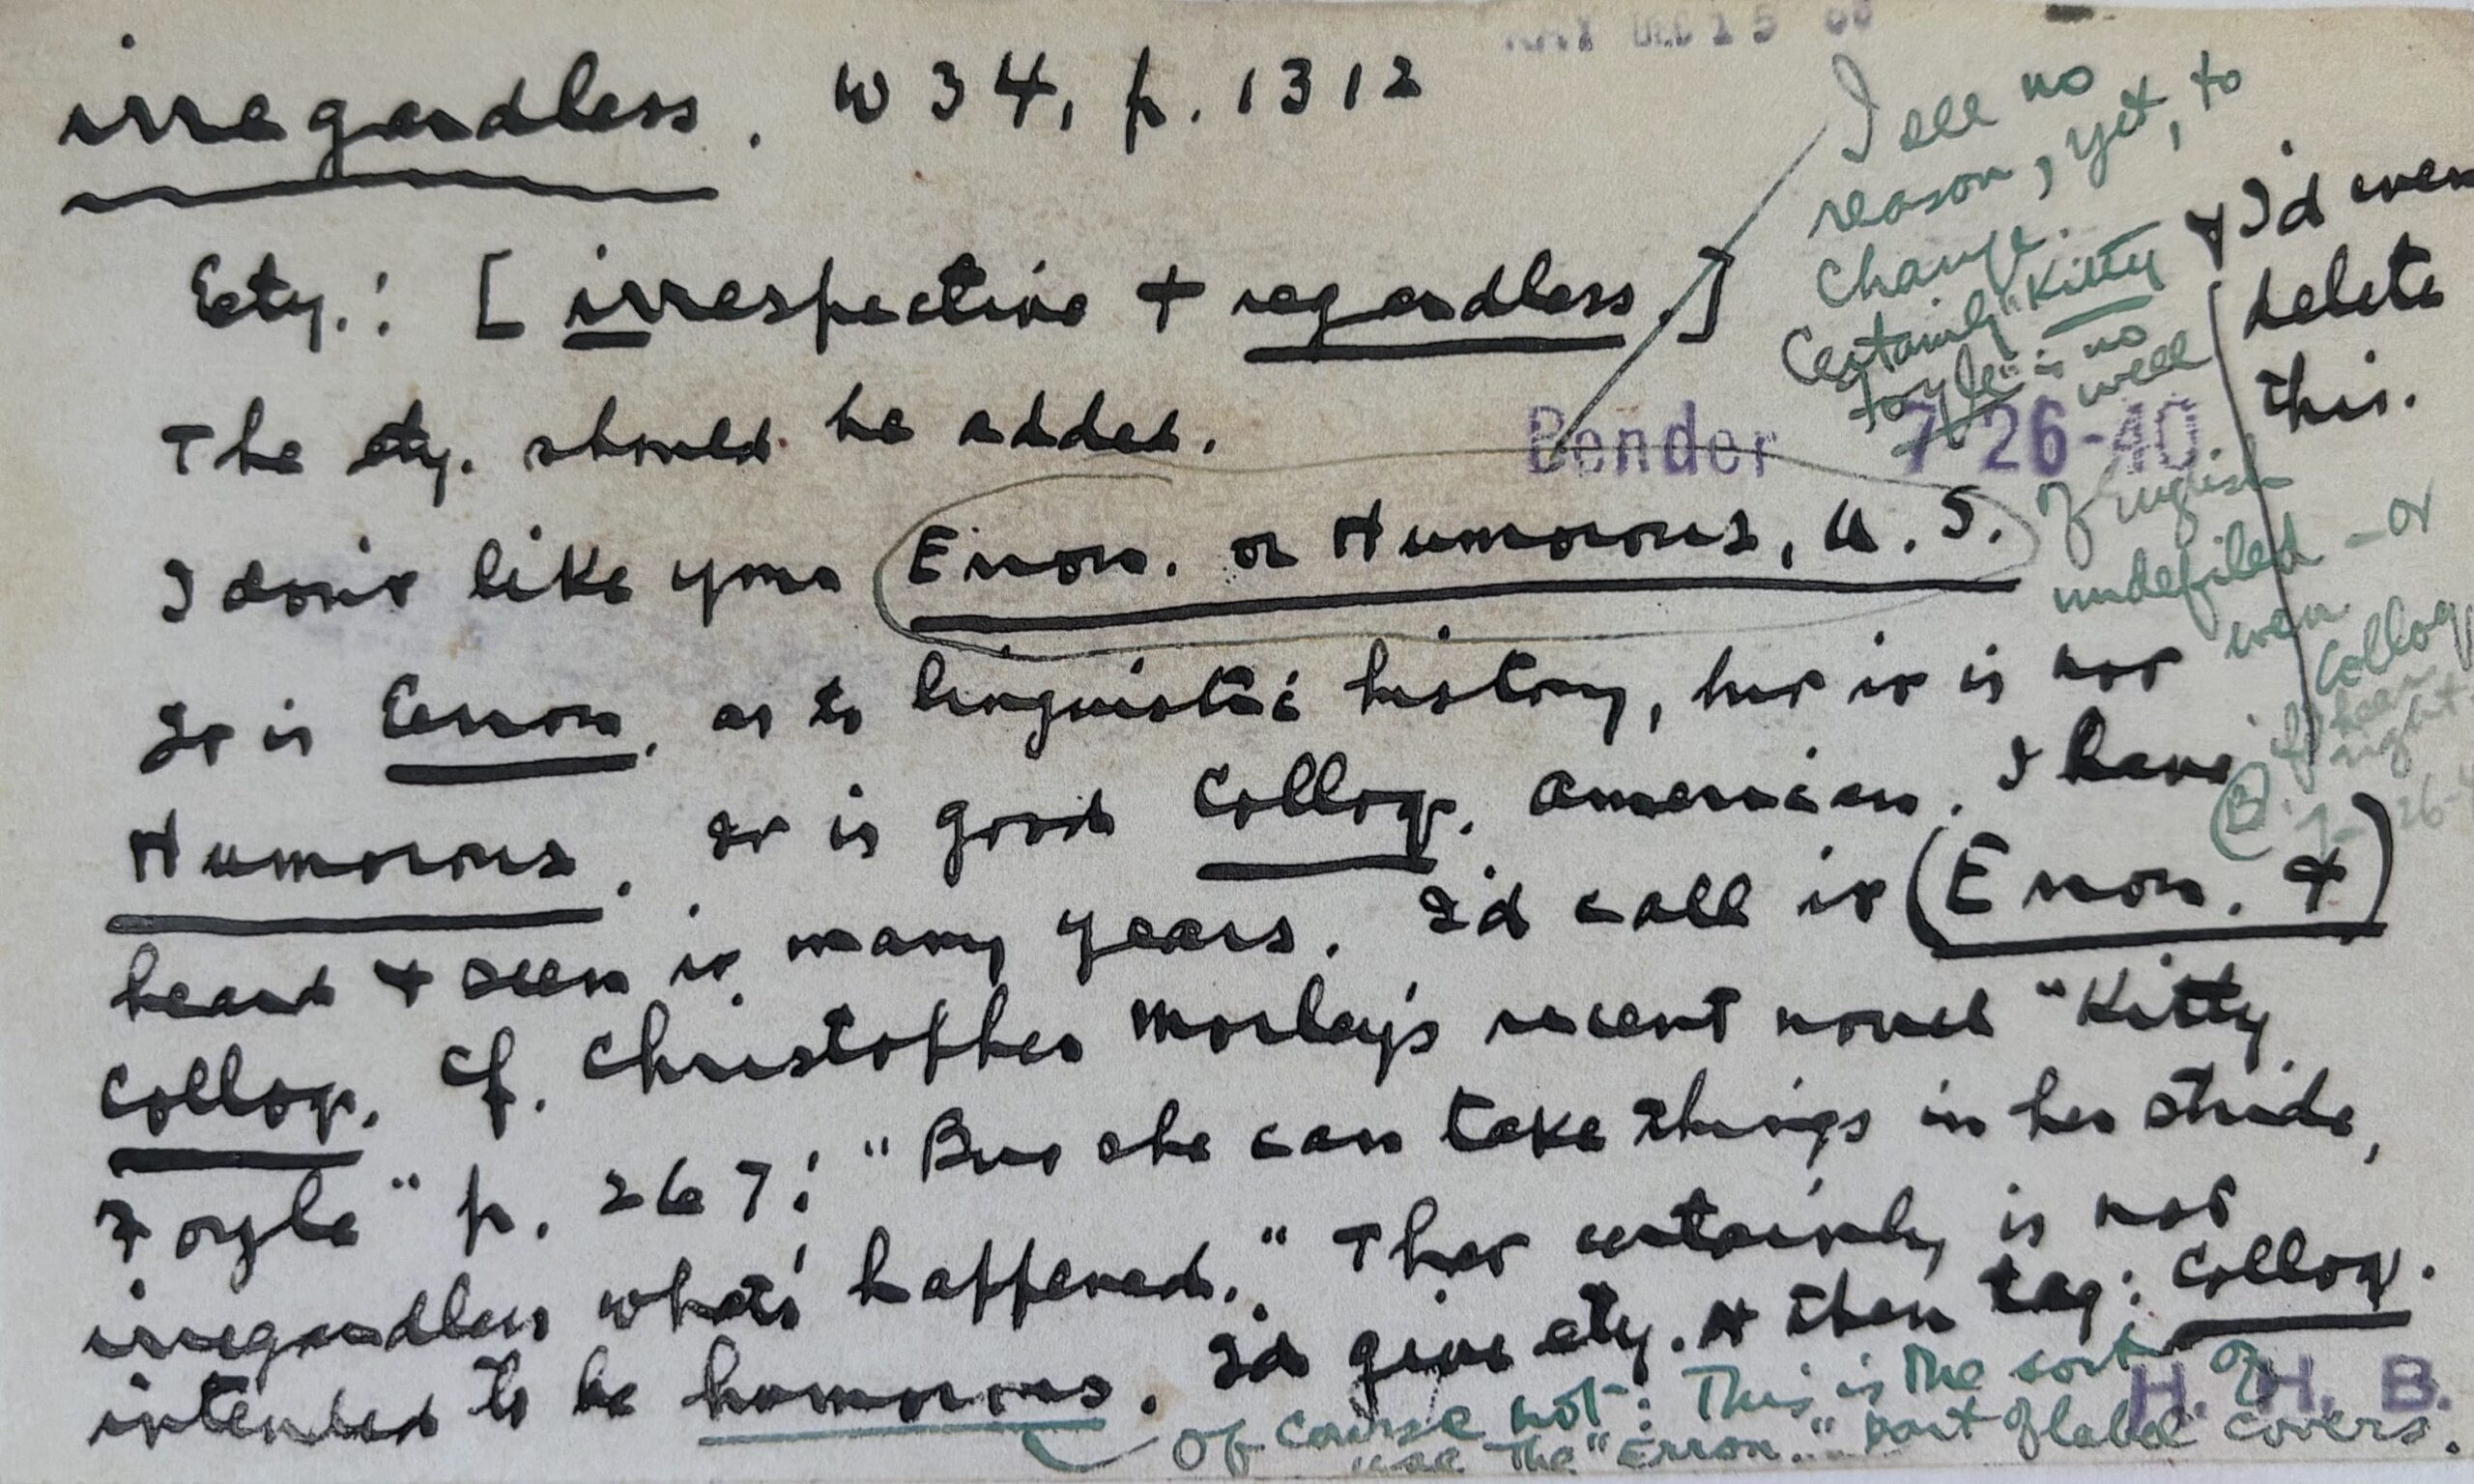 DEC 15
irregardless. W34, p. 1312
Ety.: [irrespective + regardless.]
The ety. should be added.
Bender 7-26-40
I don't like your Erron. or Humorous, U.S.
It is Erron. as to linguistic history, but it is not
Humorous. It is good Colloq. American. I have
heard + seen it many years. I'd call it (Erron. +)
Colloq. Cf. Christopher Morley's recent novel "Kitty
Foyle" p. 267: "But she can take things in her stride,
irregardless what's happened." That certainly is not
intended to be humorous. I'd give ety. + then tag: Colloq.
H. H. B.
I see no
reason, yet, to
change.
Certainly "Kitty
Foyle" is no
well
of English
undefiled - or
even
Colloq
+ I'd even
delete
this.
Of course not: This is the sort of
use the "Erron." part of label covers.